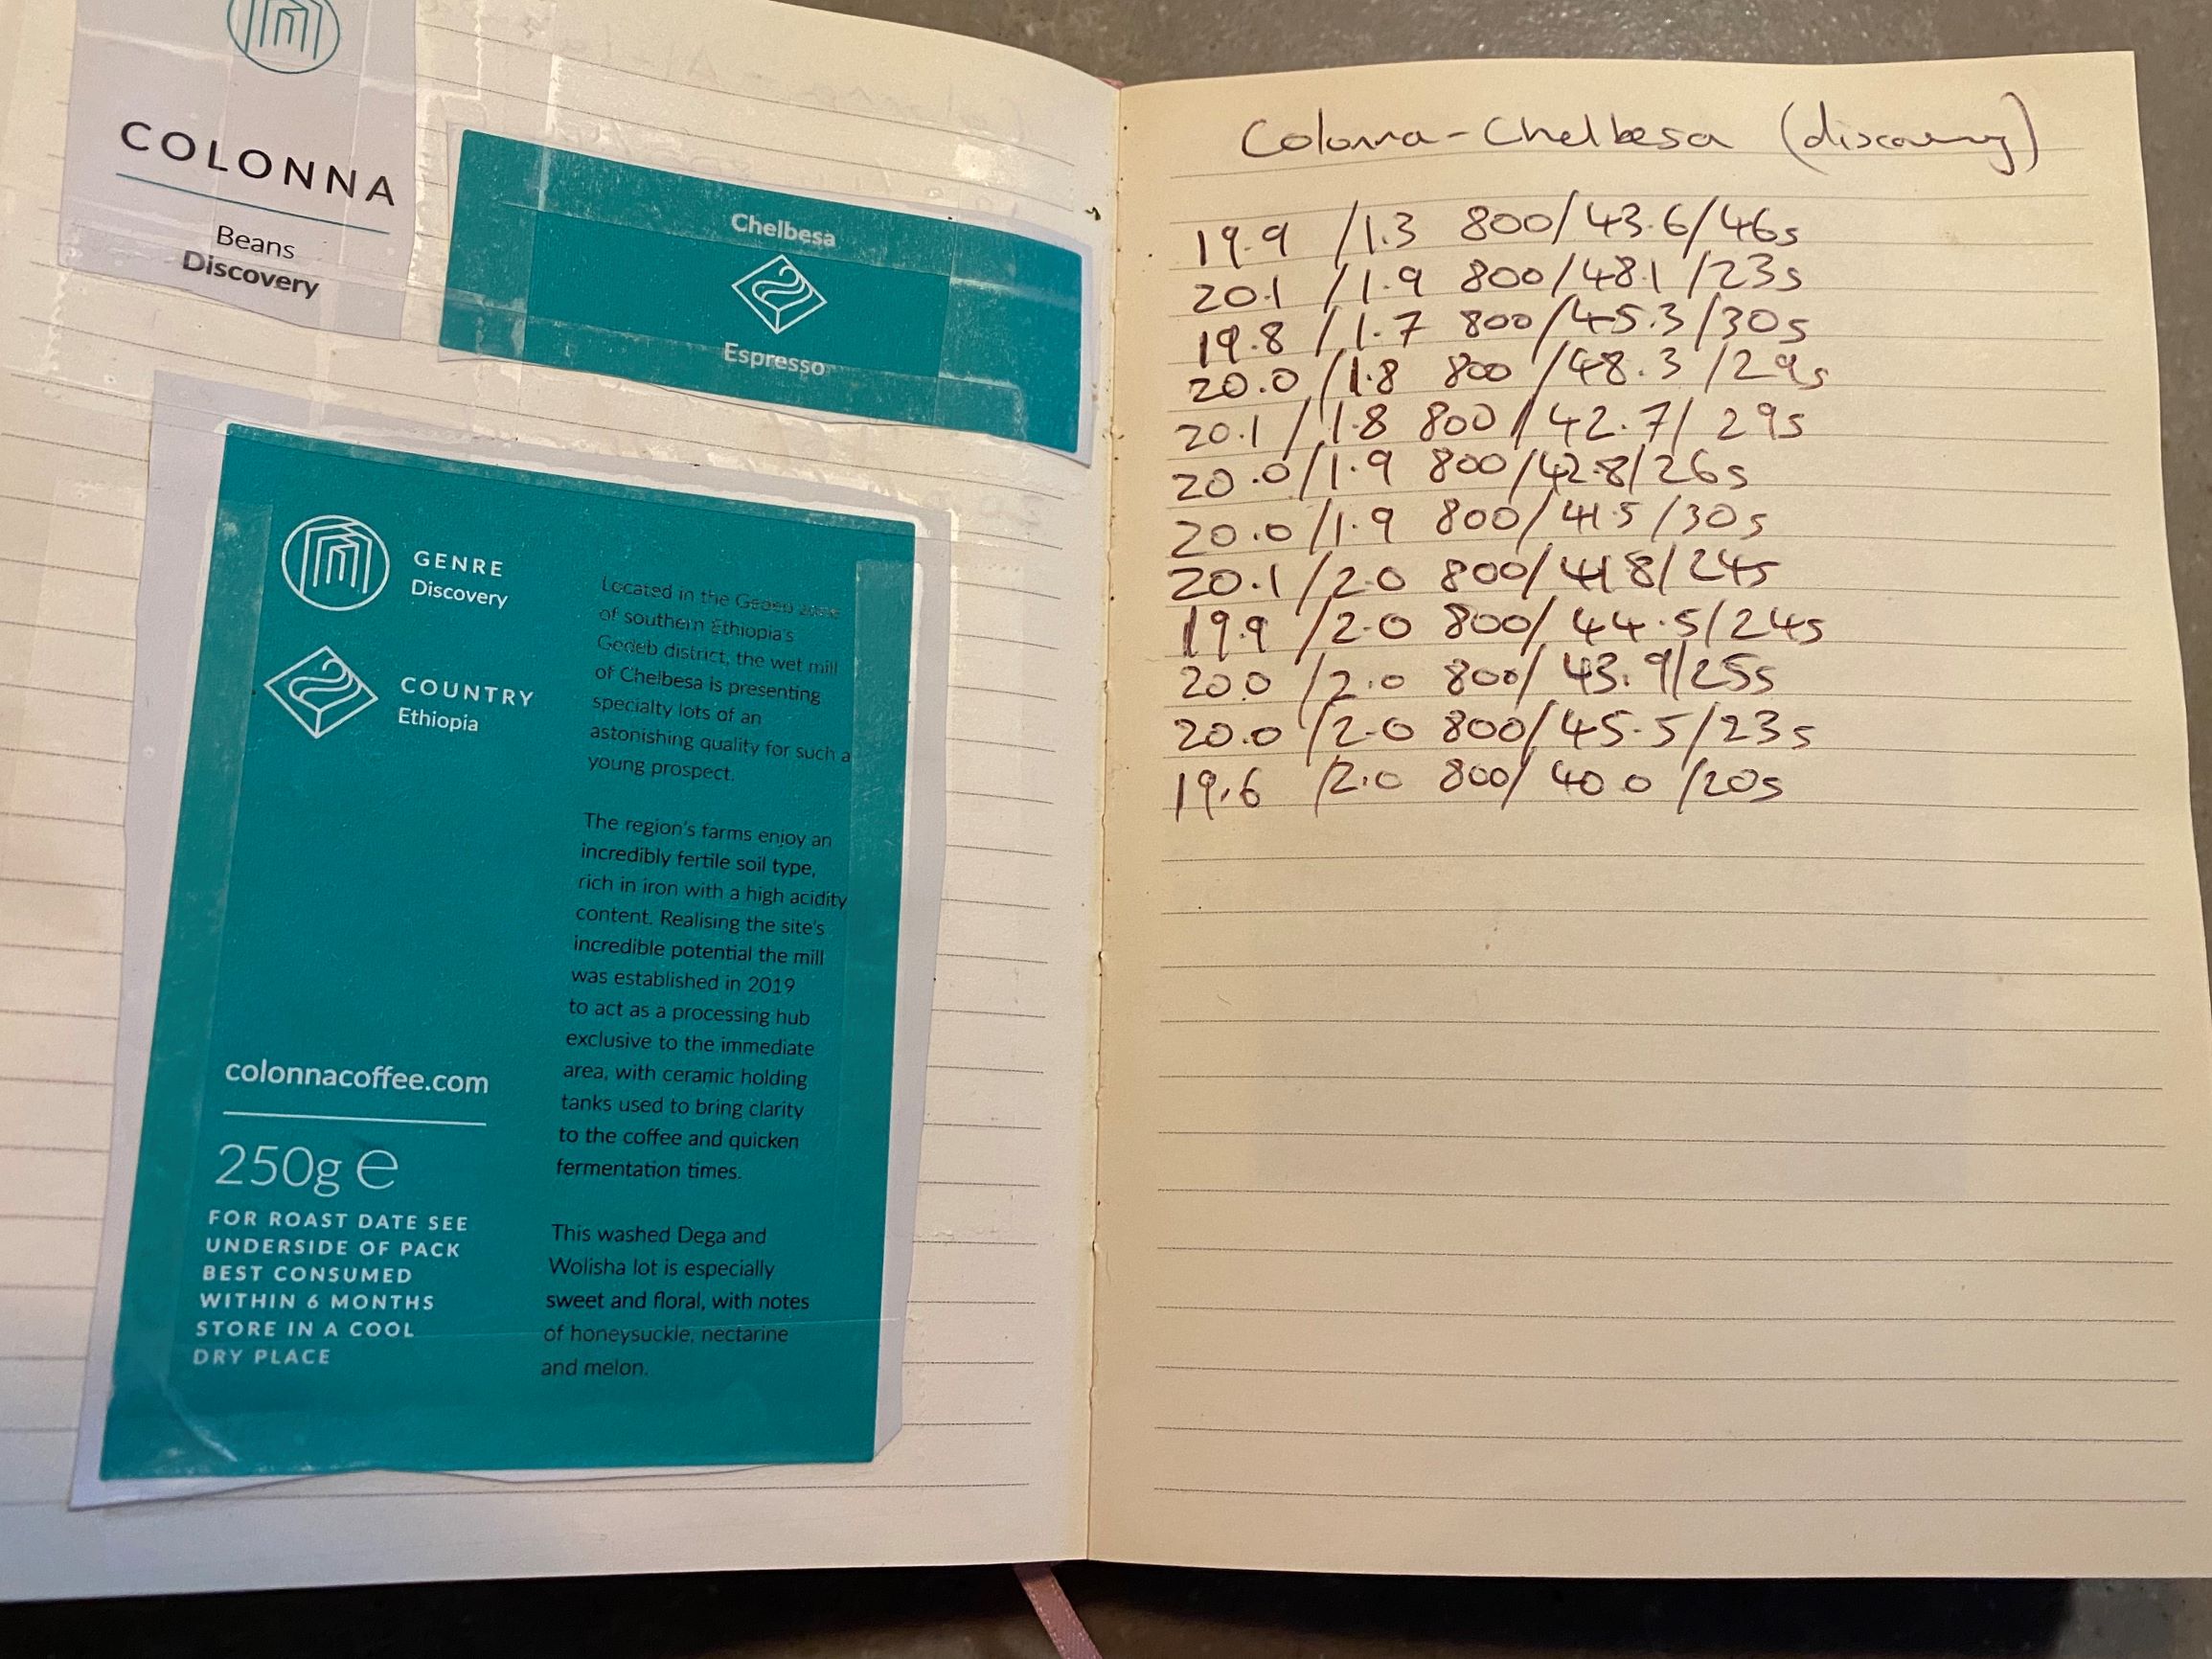 COLONNA
Beans
Discovery
Chelbesa
Espresso
GENRE
Discovery
COUNTRY
Ethiopia
Located in the Gedeo zone
of southern Ethiopia's
Gedeb district, the wet mill
of Chelbesa is presenting
specialty lots of an
astonishing quality for such a
young prospect.
The region's farms enjoy an
incredibly fertile soil type,
rich in iron with a high acidity
content. Realising the site's
incredible potential the mill
was established in 2019
to act as a processing hub
exclusive to the immediate
area, with ceramic holding
tanks used to bring clarity
to the coffee and quicken
fermentation times.
This washed Dega and
Wolisha lot is especially
sweet and floral, with notes
of honeysuckle, nectarine
and melon.
colonnacoffee.com
250g e
FOR ROAST DATE SEE
UNDERSIDE OF PACK
BEST CONSUMED
WITHIN 6 MONTHS
STORE IN A COOL
DRY PLACE
Colonna - Chelbesa (discovery)
19.9 /1.3 800/43.6/46s
20.1 /1.9 800/48.1/23s
19.8 /1.7 800/45.3/30s
20.0/1.8 800/48.3/29s
20.1/1.8 800/42.7/29s
20.0/1.9 800/42.8/26s
20.0/1.9 800/41.5/30s
20.1/2.0 800/41.8/24s
19.9/2.0 800/44.5/24s
20.0/2.0 800/43.9/25s
20.0/2.0 800/45.5/23s
19.6/2.0 800/40.0/20s